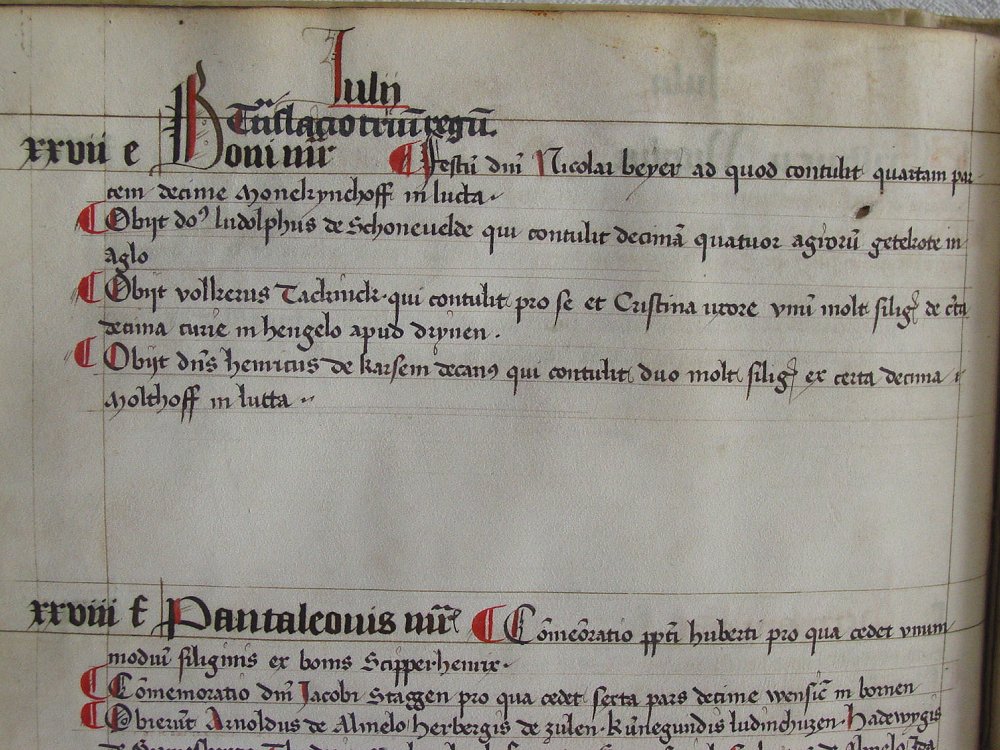 Iulij
Trāslacio triū regū.
xxvii e Boni mr̄ ¶ Festū dnī Nicolai beyer ad quod contulit quartam par
tem decime Monekynchoff in lutta.
¶ Obijt do⁹ ludolphus de Schonevelde qui contulit decimā quatuor agrorū getekote in
Aglo
¶ Obijt volkerus Tackinck qui contulit pro se et Cristina uxore vnū molt siliḡ de c̄ta
decina curie in hengelo apud drynen.
¶ Obijt dn̄s henricus de karsem decan⁹ qui contulit duo molt siliḡ ex certa decima i
Molthoff in lutta
xxviii f Pantaleonis mr̄ ¶ Cōmeōratio ppt̄i huberti pro qua cedet vnum
modium siliginis ex bonis Scipperhenrix.
¶ Cōmemoratio dnī Jacobi Staggen pro qua cedet sexta pars decime wensic̄ in bornen
¶ Obierūt Arnoldus de Almelo herbergis de zulen kūnegundis ludinchuzen hadewygis